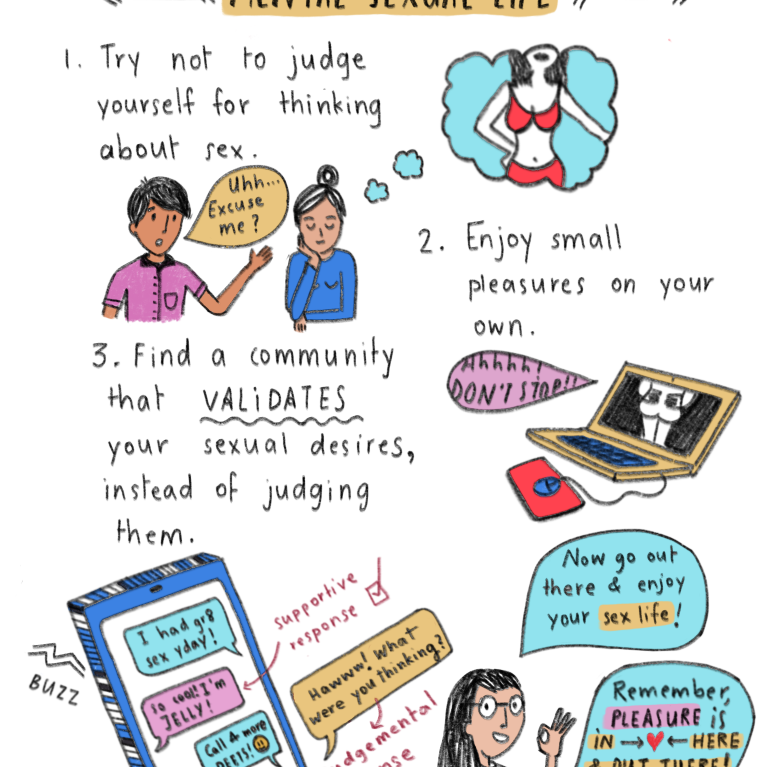 MENTAL SEXUAL LIFE
1. Try not to judge
yourself for thinking
about sex.
Uhh...
Excuse
me?
2. Enjoy small
pleasures on your
own.
Ahhhh!
DON'T STOP!!
3. Find a community
that VALiDATES
your sexual desires,
instead of judging
them.
BUZZ
I had gr8
sex yday!
So cool! I'm
JELLY!
Call 4 more
DEETS!
supportive
response
Hawww! What
were you thinking?
Now go out
there & enjoy
your sex life!
Remember,
PLEASURE is
iN → ♥ ← HERE
& OUT THERE!